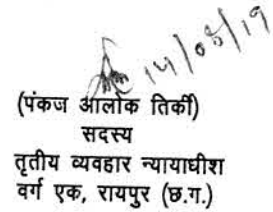 14/05/19
(पंकज आलोक तिर्की)
सदस्य
तृतीय व्यवहार न्यायाधीश
वर्ग एक, रायपुर (छ.ग.)